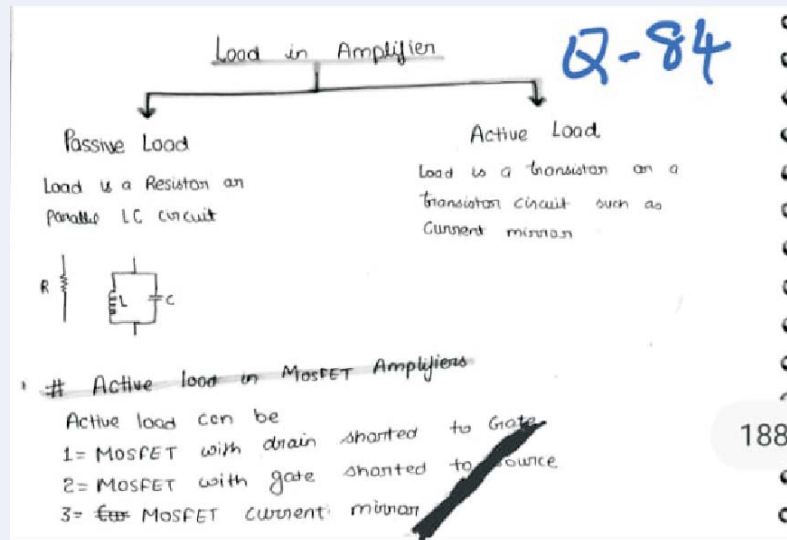 Load in Amplifier
Q-84
Passive Load
Load is a Resistor or
Parallel LC circuit
Active Load
Load is a transistor or a
transistor circuit such as
Current mirror
R
L
C
# Active load in MOSFET Amplifiers
Active load can be
1= MOSFET with drain shorted to Gate
2= MOSFET with gate shorted to source
3= MOSFET current mirror
188